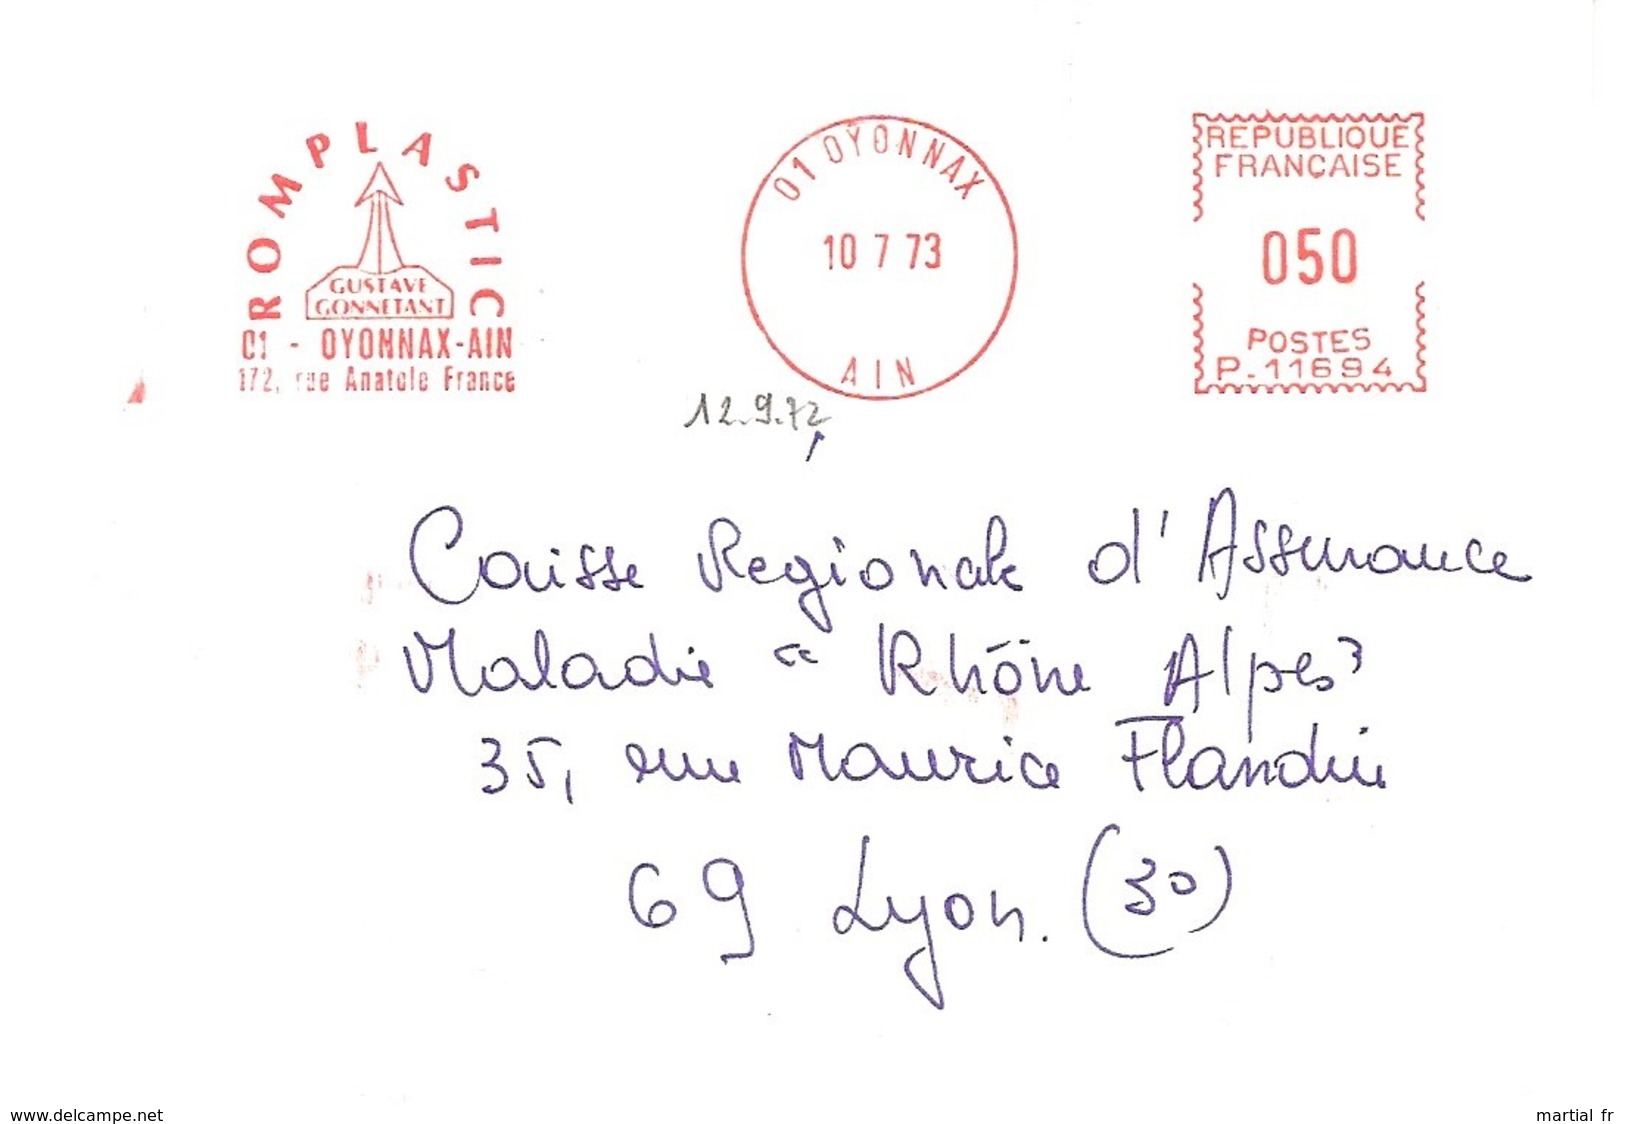 ROMPLASTIC
GUSTAVE
GONNETANT
01 - OYONNAX-AIN
172, rue Anatole France
01 OYONNAX
10 7 73
AIN
REPUBLIQUE
FRANÇAISE
050
POSTES
P.11694
12.9.72
Caisse Regionale d'Assurance
Maladie " Rhône Alpes"
35, rue Maurice Flandin
69 Lyon. (3°)
www.delcampe.net
martial fr